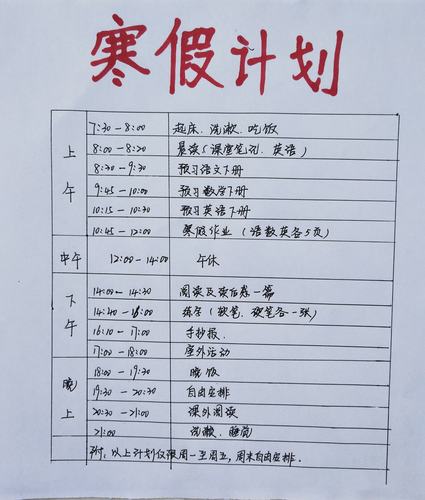 寒假计划
上午
7:30－8:00 起床、洗漱、吃饭
8:00－8:20 晨读(课堂笔记、英语)
8:30－9:30 预习语文下册
9:45－10:00 预习数学下册
10:15－10:30 预习英语下册
10:45－12:00 寒假作业(语数英各5页)
中午 12:00－14:00 午休
下午
14:00－14:30 阅读及读后感一篇
14:40－16:00 练字(软笔、硬笔各一张)
16:10－17:00 手抄报.
17:00－18:00 室外活动
晚上
18:00－19:30 晚饭
19:30－20:30 自由安排
20:30－21:00 课外阅读
21:00 洗漱、睡觉
附:以上计划仅限周一至周五,周末自由安排.